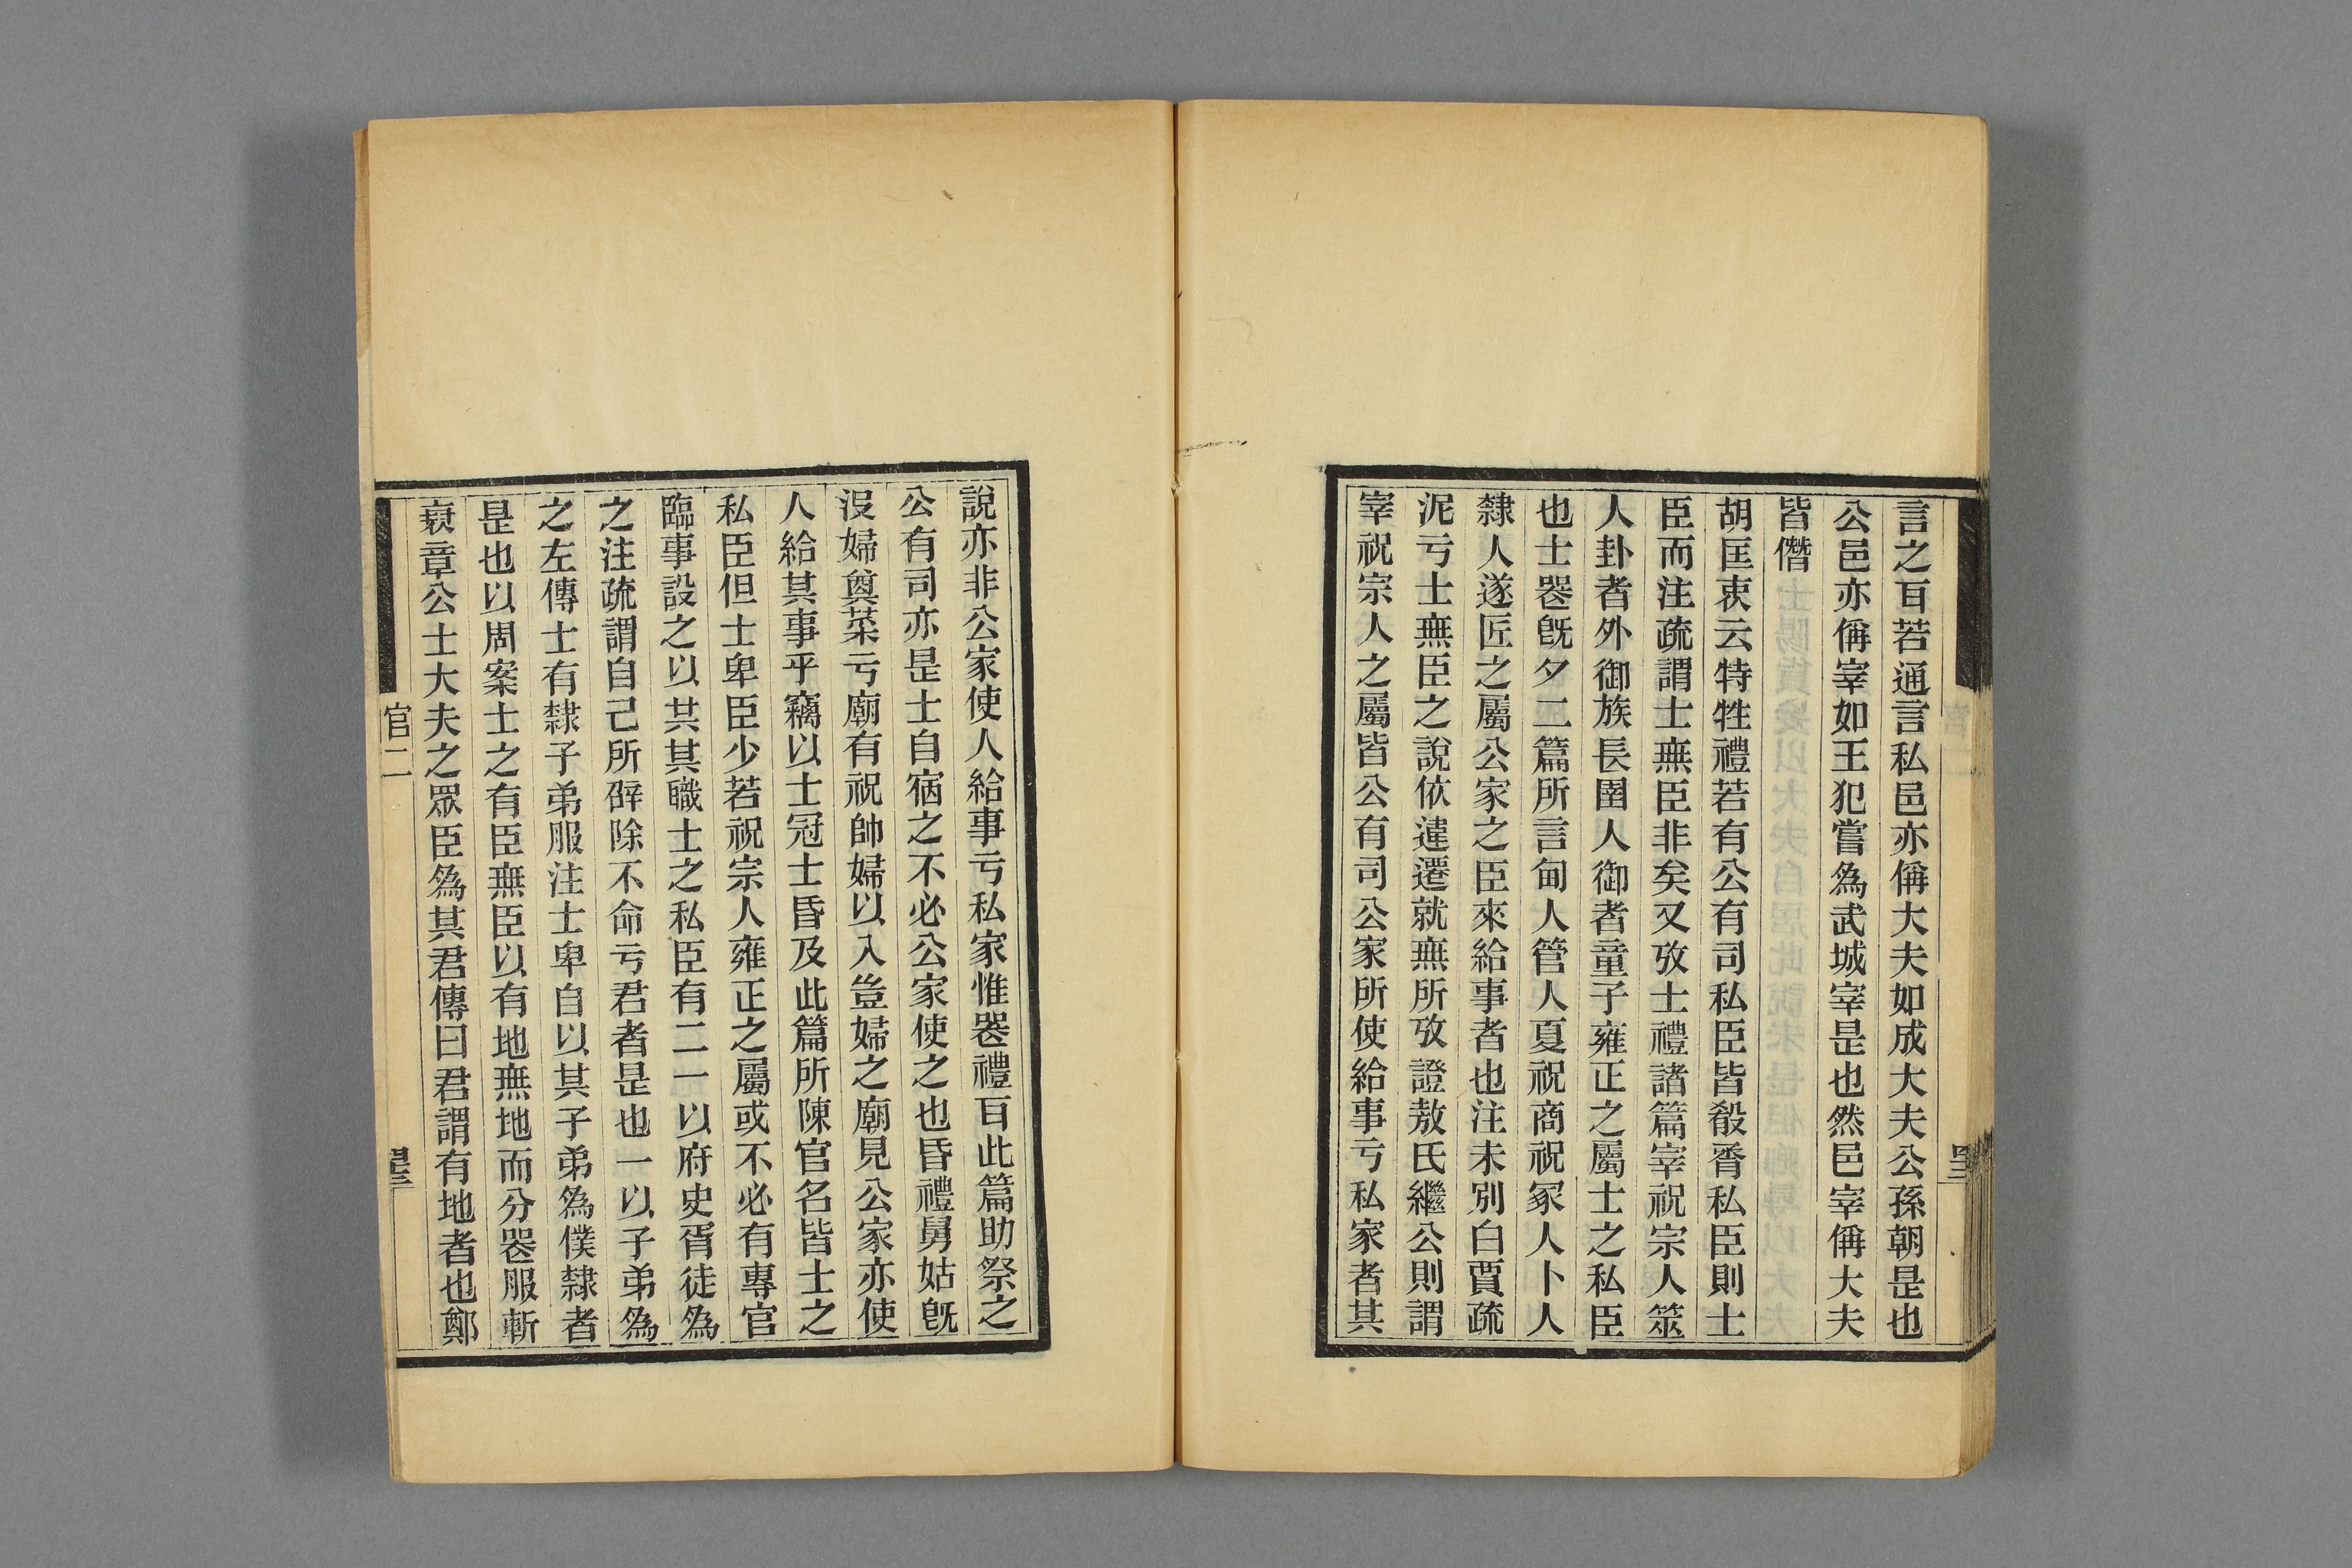 言之耳若通言私邑亦偁大夫如成大夫公孫朝是也
公邑亦偁宰如王犯嘗爲武城宰是也然邑宰偁大夫
皆僭
胡匡衷云特牲禮若有公有司私臣皆殽脀私臣則士
臣而注疏謂士無臣非矣又攷士禮諸篇宰祝宗人筮
人卦者外御族長圉人御者童子雍正之屬士之私臣
也士器旣夕二篇所言甸人管人夏祝商祝冢人卜人
隸人遂匠之屬公家之臣來給事者也注未別白賈疏
泥亏士無臣之說依違遷就無所攷證敖氏繼公則謂
宰祝宗人之屬皆公有司公家所使給事亏私家者其
說亦非公家使人給事亏私家惟器禮耳此篇助祭之
公有司亦是士自宿之不必公家使之也昏禮舅姑旣
沒婦奠菜亏廟有祝帥婦以入豈婦之廟見公家亦使
人給其事乎竊以士冠士昏及此篇所陳官名皆士之
私臣但士卑臣少若祝宗人雍正之屬或不必有專官
臨事設之以共其職士之私臣有二一以府史胥徒爲
之注疏謂自己所辟除不命亏君者是也一以子弟爲
之左傳士有隸子弟服注士卑自以其子弟爲僕隸者
是也以周案士之有臣無臣以有地無地而分器服斬
衰章公士大夫之眾臣爲其君傳曰君謂有地者也鄭
官二